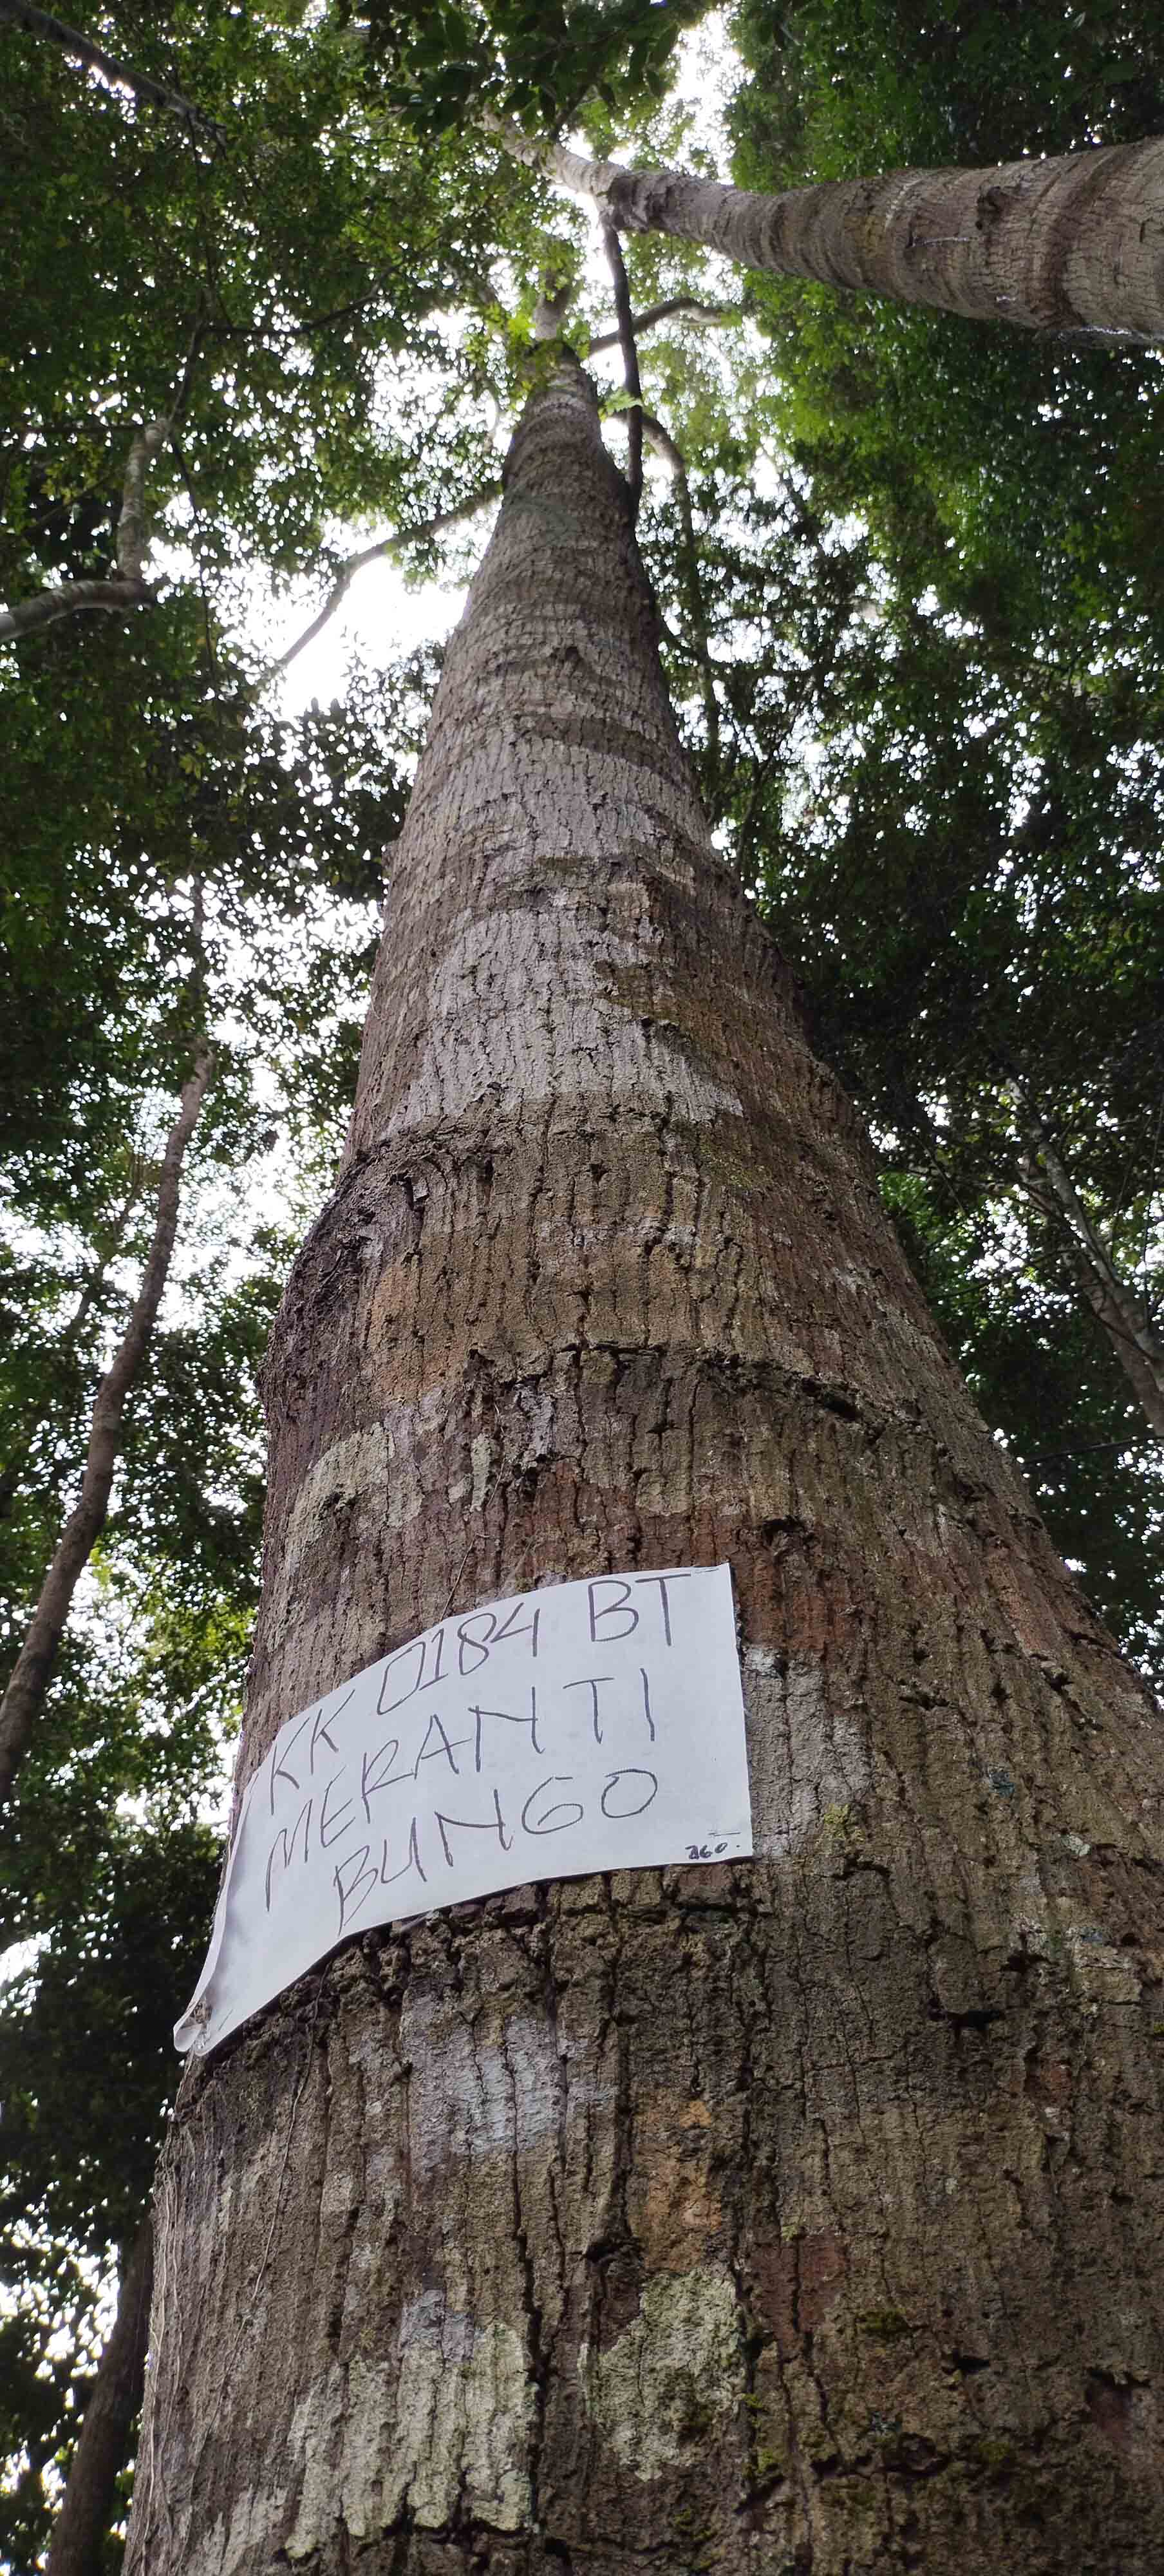 KK 0184 BT
MERANTI
BUNGO
260.